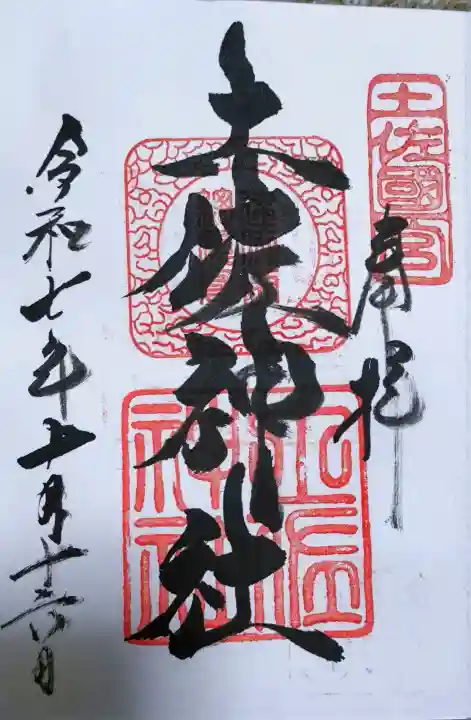 土佐國一宮
奉拝
土佐神社
土佐神社
令和七年十月十六日